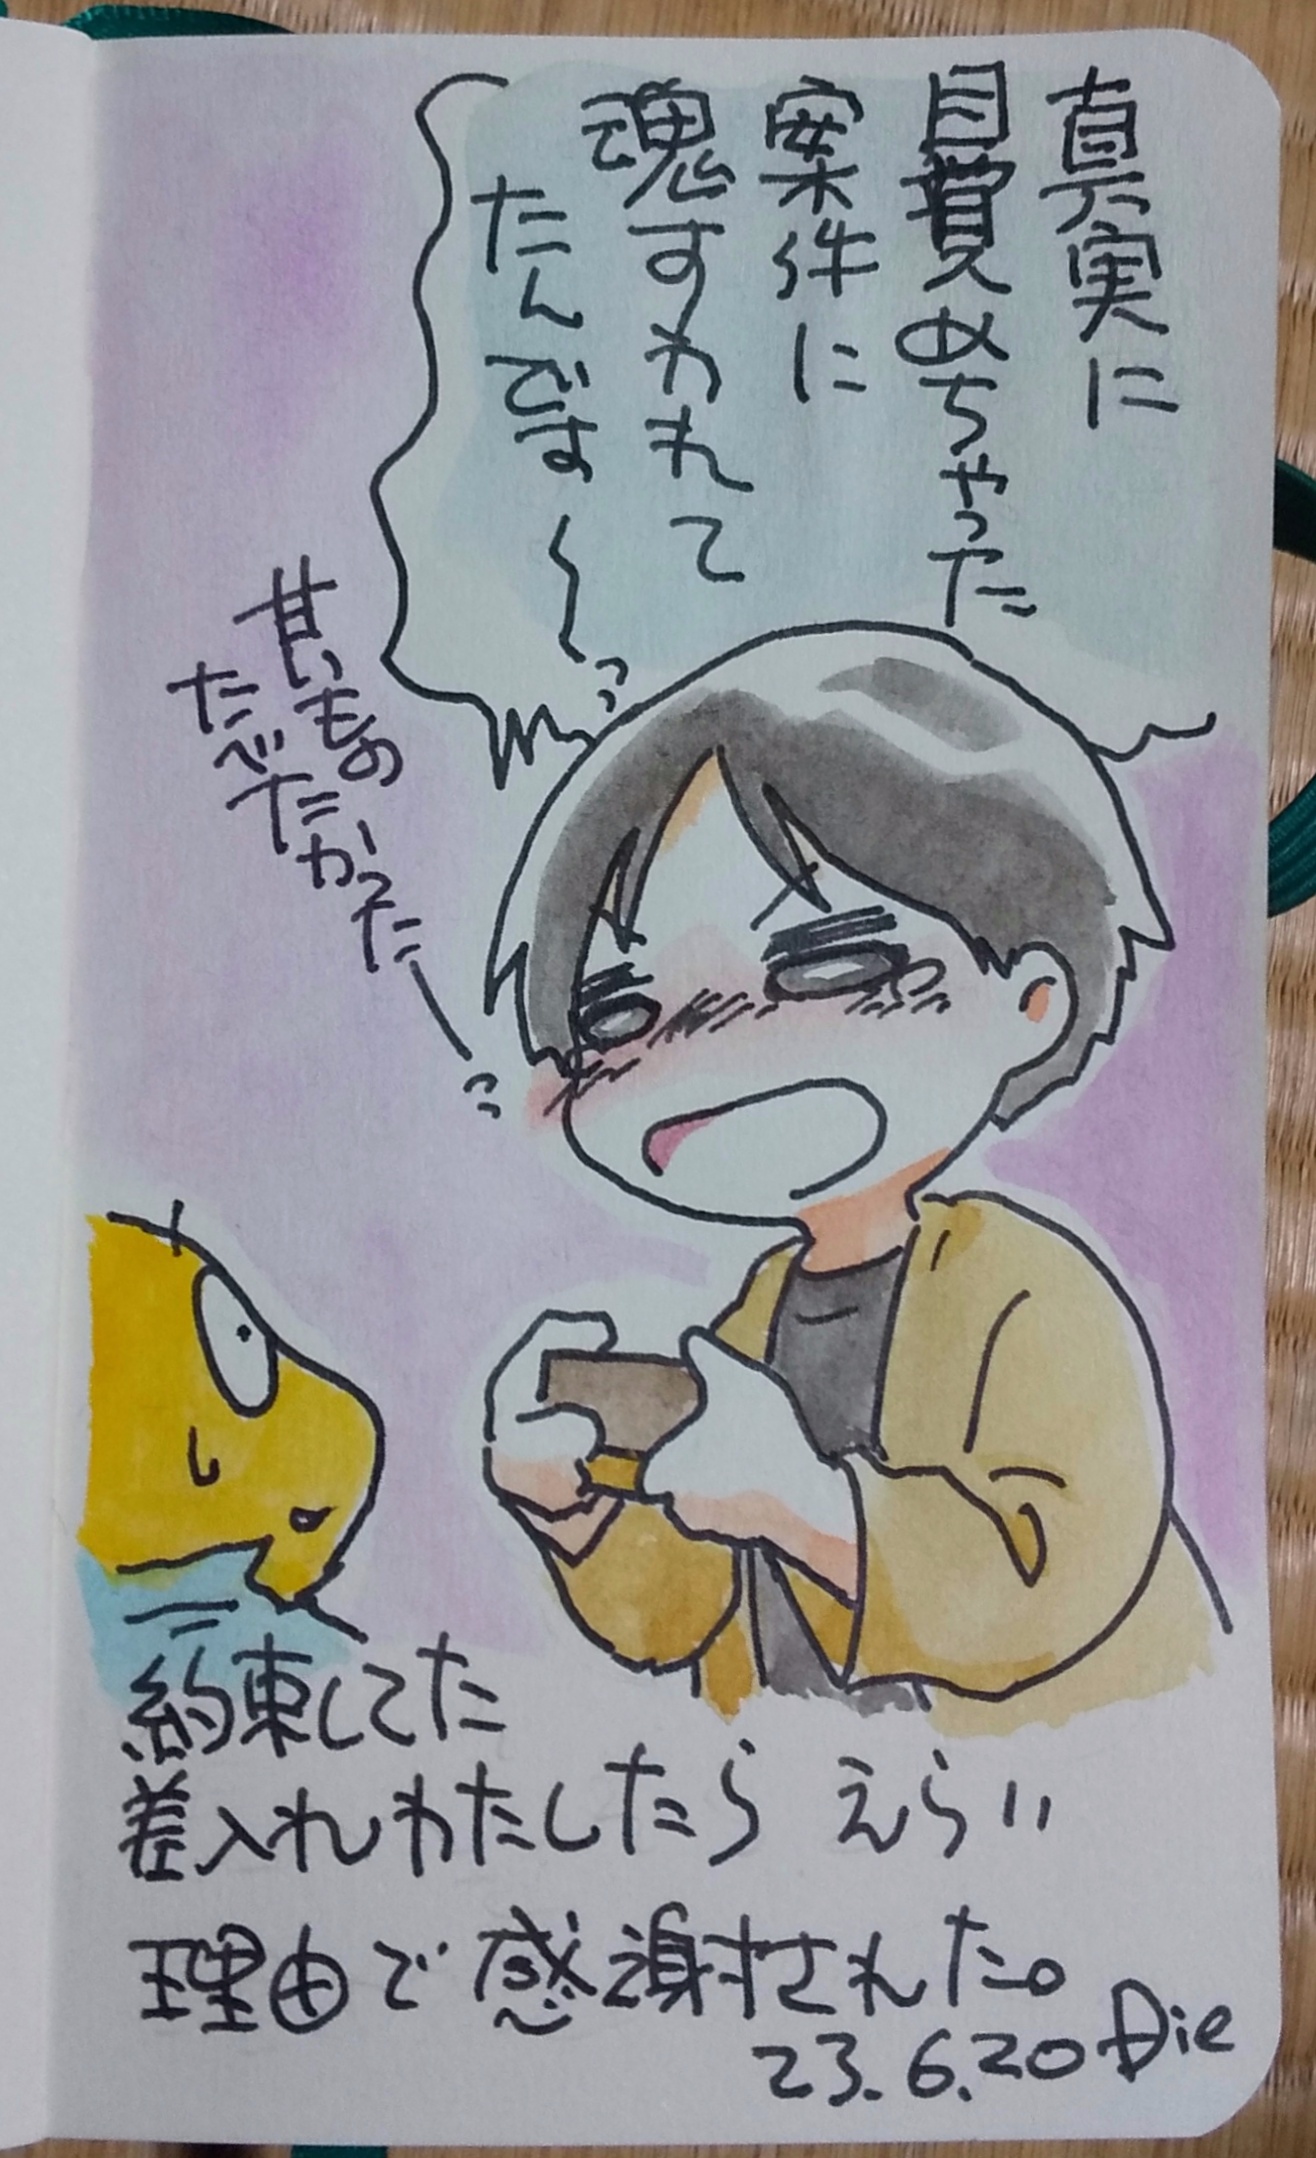 真実に
目覚めちゃった
案件に
魂すわれて
たんです〜
甘いもの
たべたかったー
約束してた
差入れわたしたら えらい
理由で感謝された。
23.6.20 Die